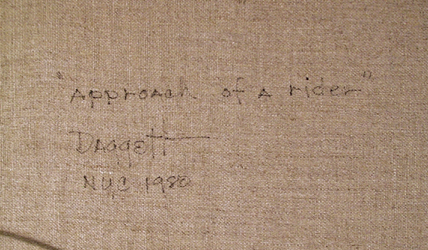 "Approach of a rider"
Daggett
NYC 1980